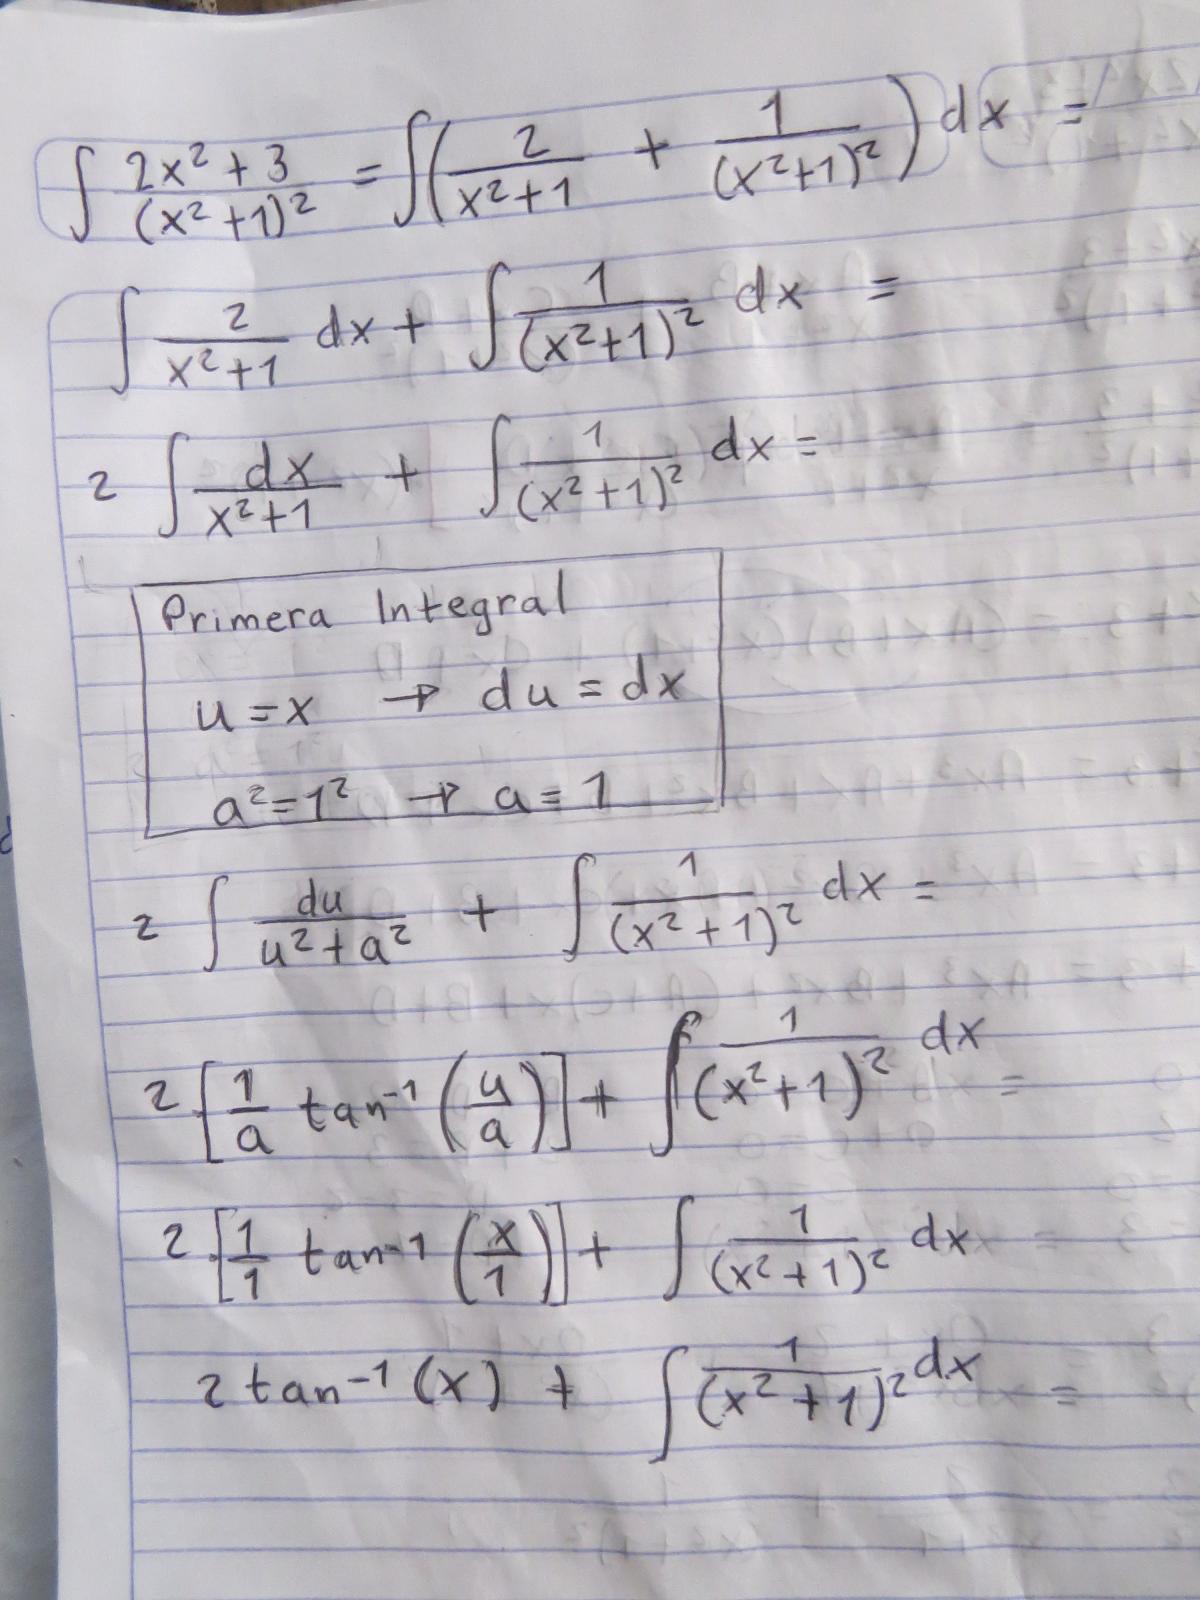 ∫ (2x² + 3)/(x² + 1)² = ∫(2/(x²+1) + 1/(x²+1)²) dx =
∫ 2/(x²+1) dx + ∫ 1/(x²+1)² dx =
2 ∫ dx/(x²+1) + ∫ 1/(x²+1)² dx =
Primera Integral
u = x → du = dx
a² = 1² → a = 1
2 ∫ du/(u²+a²) + ∫ 1/(x²+1)² dx =
2 [1/a tan⁻¹ (u/a)] + ∫ 1/(x²+1)² dx =
2 [1/1 tan⁻¹ (x/1)] + ∫ 1/(x²+1)² dx
2 tan⁻¹ (x) + ∫ 1/(x²+1)² dx =